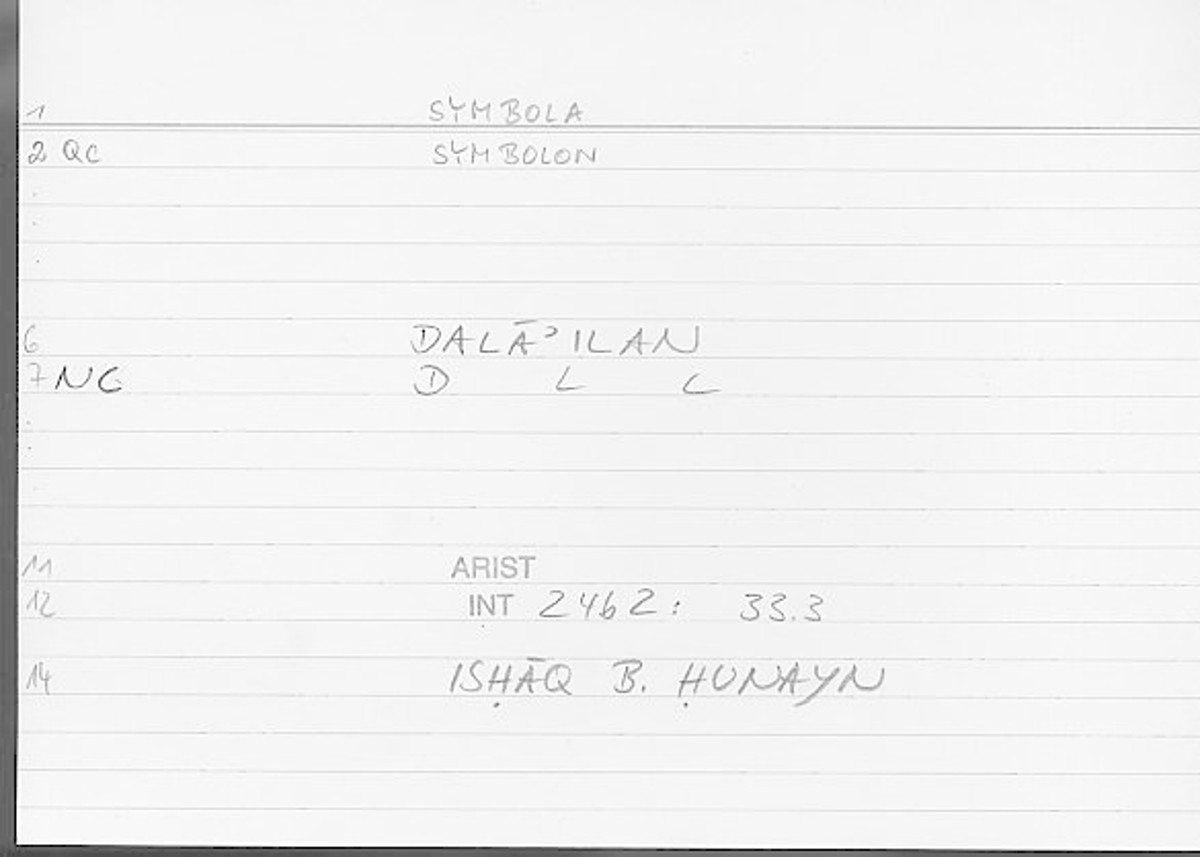 1 SYMBOLA
2 QC SYMBOLON
6 DALĀʾILAN
7 NG D L L
11 ARIST
12 INT 2462: 33.3
14 ISḤĀQ B. ḤUNAYN